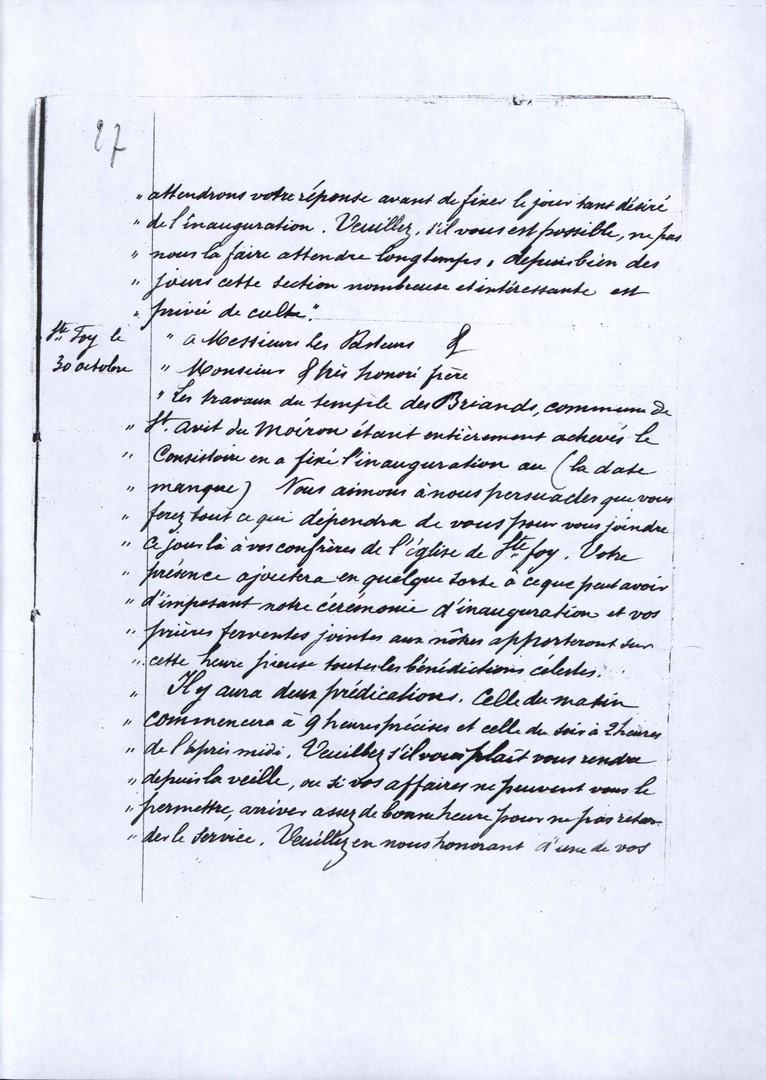 27
" attendrons votre réponse avant de fixer le jour tant désiré
" de l'inauguration. Veuillez, s'il vous est possible, ne pas
" nous la faire attendre longtemps, depuis bien des
" jours cette section nombreuse et intéressante est
" privée de culte."
Ste Foy le
30 octobre
" a Messieurs les Pasteurs &
" Monsieur & très honoré frère
" Les travaux du temple des Briands, commune de
" St. Avit du Moiron étant entièrement achevés le
" Consistoire en a fixé l'inauguration au (la date
" manque) Nous aimons à nous persuader que vous
" ferez tout ce qui dépendra de vous pour vous joindre
" ce jour là à vos confrères de l'église de Ste foy. Votre
" présence ajoutera en quelque sorte à ce que peut avoir
" d'imposant notre cérémonie d'inauguration et vos
" prières ferventes jointes aux nôtres apporteront sur
" cette heure pieuse toutes les bénédictions celestes.
" Il y aura deux prédications. Celle du matin
" commencera à 9 heures précises et celle du soir à 2 heures
" de l'après midi. Veuillez s'il vous plaît vous rendre
" depuis la veille, ou si vos affaires ne peuvent vous le
" permettre, arriver assez de bonne heure pour ne pas retar-
" der le service. Veuillez en nous honorant d'une de vos